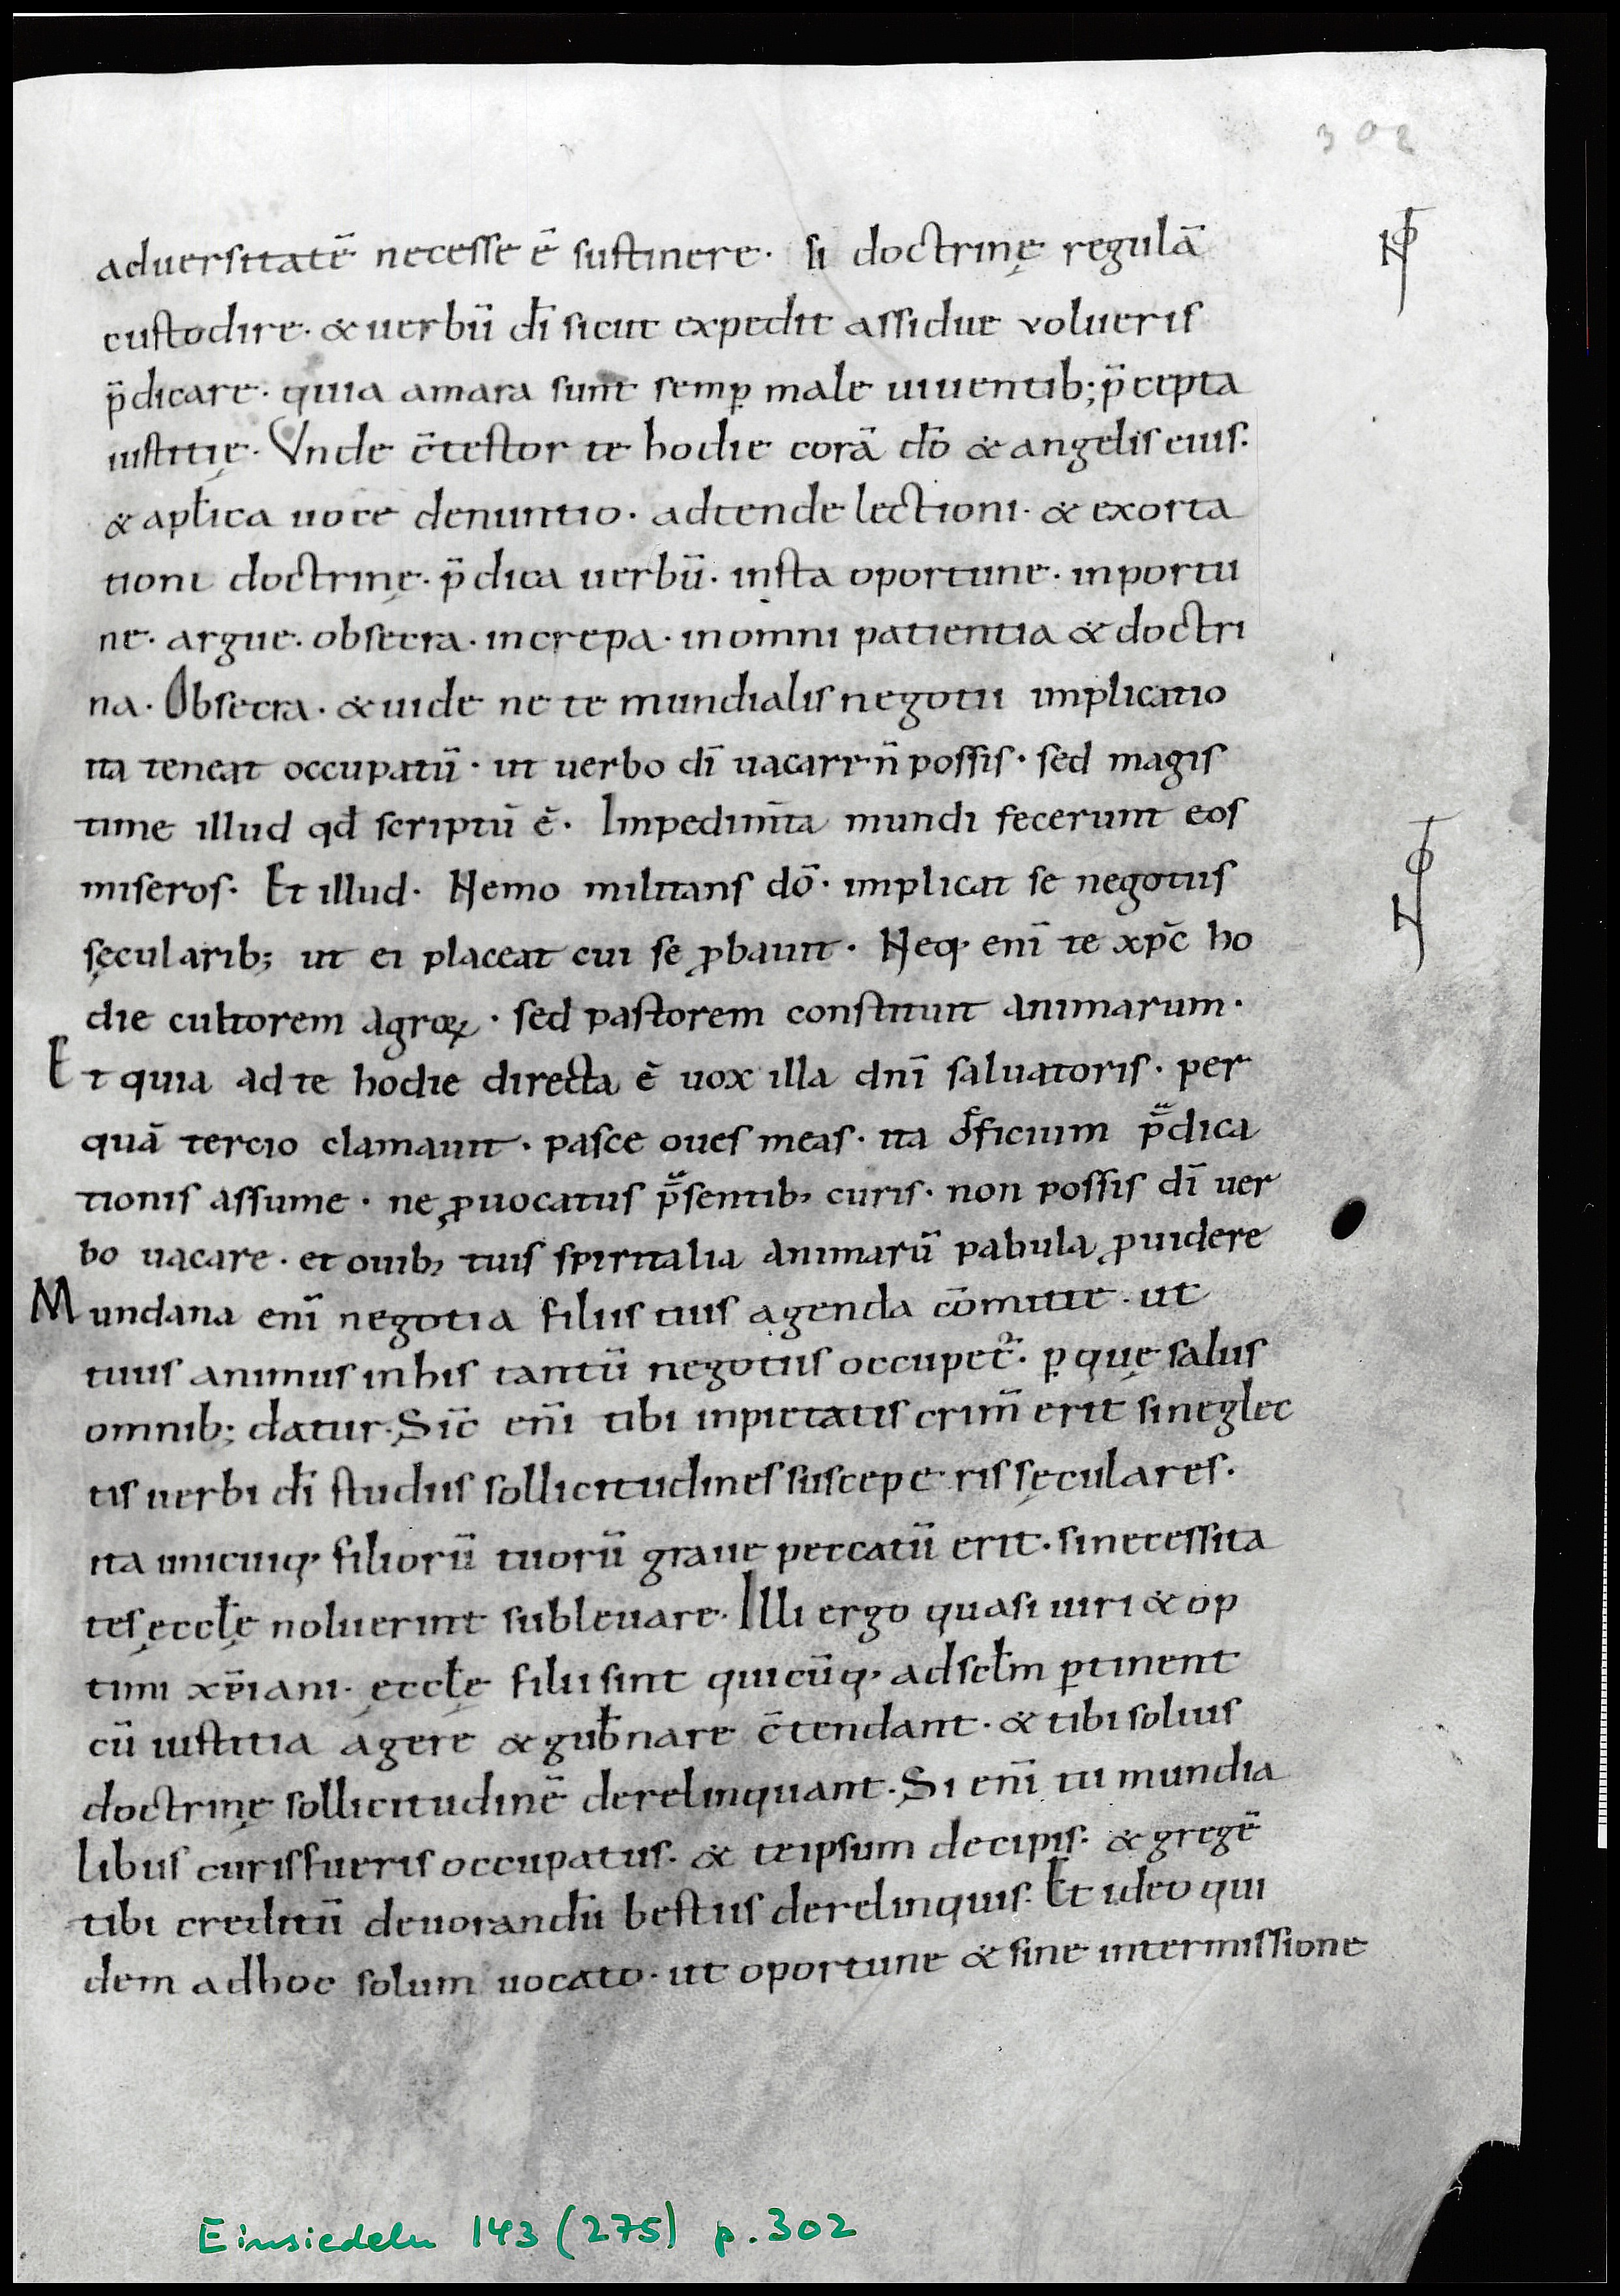 302
aduersitatē necesse ē sustinere· si doctrinę regulā
custodire· & uerbū dī sicut expedit assidue volueris
p̄dicare· quia amara sunt semp̱ male uiuentib; p̄cepta
iustitię· Vnde c̄testor te hodie corā dō & angelis eius·
& apl̄ica uoce denuntio· adtende lectioni· & exorta
tioni doctrinę· p̄dica uerbū· insta oportune· inportu
ne· argue· obsecra· increpa· in omni patientia & doctri
na· Obsecra· & uide ne te mundialis negotii implicatio
ita teneat occupatū· ut uerbo dī uacare n̄ possis· sed magis
time illud qd̄ scriptū ē· Impedim̄ta mundi fecerunt eos
miseros· Et illud· Nemo militans dō· implicat se negotiis
sęcularib; ut ei placeat cui se ꝓbauit· Neq· enī te xp̄c ho
die cultorem agroꝝ· sed pastorem constituit animarum·
Et quia ad te hodie directa ē uox illa dnī saluatoris· per
quā tercio clamauit· pasce oues meas· ita officium p̄dica
tionis assume· ne ꝓuocatus p̄sentib; curis· non possis dī uer
bo uacare· et ouib; tuis spiritalia animarū pabula ꝓuidere
Mundana enī negotia filiis tuis agenda cōmitte· ut
tuus animus in his tantū negotiis occupet᷑· ꝑ quę salus
omnib; datur· Sic̄ enī tibi inpietatis crim̄ erit si neglec
tis uerbi dī studiis sollicitudines susceperis sęculares·
ita unicuiq· filiorū tuorū graue peccatū erit· si necessita
tes ęccl̄ę noluerint subleuare· Illi ergo quasi uiri & op
timi xp̄iani· ęccl̄ę filii sint quicūq· ad scl̄m ꝑtinent
cū iustitia agere & gub̄nare c̄tendant· & tibi solius
doctrinę sollicitudinē derelinquant· Si enī tu mundia
libus curis fueris occupatus· & teipsum decipis· & gregē
tibi creditū deuorandū bestiis derelinquis· Et ideo qui
dem ad hoc solum uocato· ut oportune & sine intermissione
Einsiedeln 143 (275) p. 302